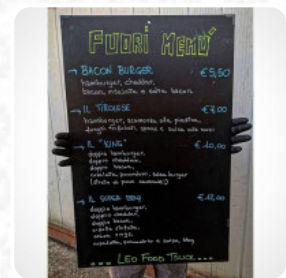 FUORI MENU'
BACON BURGER €5,50
hamburger, cheddar,
bacon, insalata e salsa bacon
IL TIROLESE €7,00
hamburger, scamorza alla piastra,
funghi trifolati, speck e salsa alle noci
IL "KING" €10,00
doppio hamburger,
doppio cheddar,
doppio bacon,
insalata, pomodoro, salsa burger
IL SUPER €12,00
doppio hamburger,
doppio cheddar,
doppio bacon,
cipolla
onion rings
insalata, pomodoro e salsa bbq
LEO FOOD TRUCK